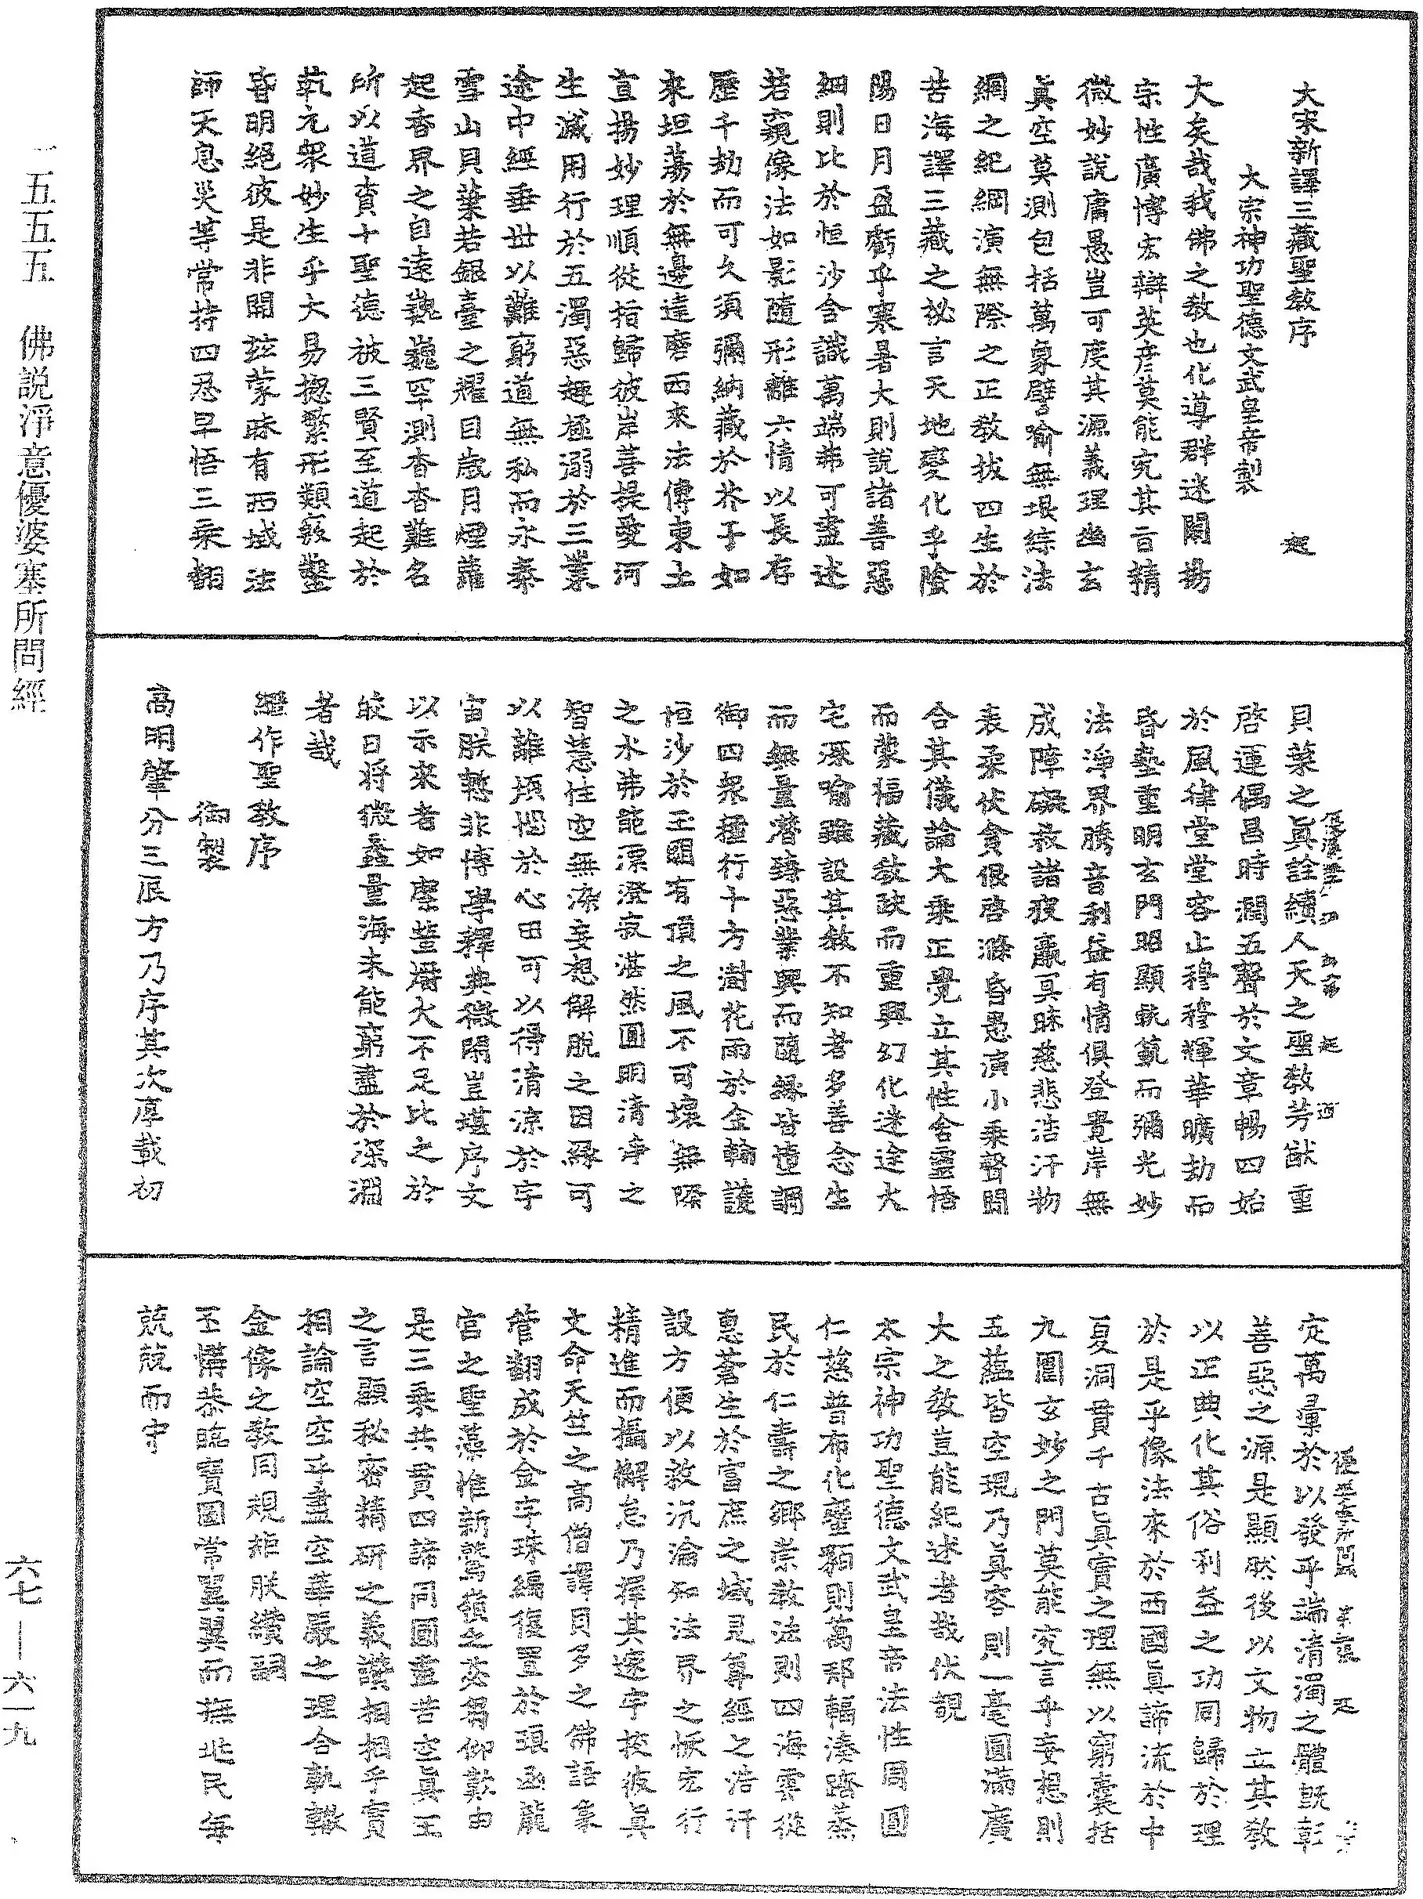 大宋新譯三藏聖教序 起
大宗神功聖德文武皇帝製
大矣哉我佛之教也化導群迷闡揚
宗性廣博宏辯英彥莫能究其旨精
微妙說庸愚豈可度其源義理幽玄
真空莫測包括萬象譬喻無垠綜法
網之紀綱演無際之正教拔四生於
苦海譯三藏之祕言天地變化乎陰
陽日月盈虧乎寒暑大則說諸善惡
細則比於恒沙含識萬端弗可盡述
若窺像法如影隨形離六情以長存
歷千劫而可久須彌納藏於芥子如
來坦蕩於無邊達磨西來法傳東土
宣揚妙理順從指歸彼岸菩提愛河
生滅用行於五濁惡趣極溺於三業
途中經垂世以難窮道無私而永泰
雪山貝葉若銀臺之耀目歲月煙蘿
起香界之自遠巍巍罕測杳杳難名
所以道賁十聖德被三賢至道起於
乾元眾妙生乎大易揔繫形類竅鑿
昏明絕彼是非開茲蒙昧有西域法
師天息災等常持四忍早悟三乘翻
貝葉之真詮續人天之聖教芳猷重
啓運偶昌時潤五聲於文章暢四始
於風律堂堂容止穆穆輝華曠劫而
昏墊重明玄門昭顯軌範而彌光妙
法淨界騰音利益有情俱登覺岸無
成障礙救諸疲羸冥昧慈悲浩汗物
表柔伏貪很啓滌昏愚演小乘聲聞
合其儀論大乘正覺立其性含靈悟
而蒙福藏教缺而重興幻化迷途火
宅深喻雖設其教不知者多善念生
而無量潛臻惡業興而隨緣皆墮調
御四眾積行十方澍花雨於金輪護
恒沙於玉闕有頂之風不可壞無際
之水弗能漂澄寂湛然圓明清淨之
智慧性空無染妄想解脫之因緣可
以離煩惱於心田可以得清涼於宇
宙朕慙非博學釋典微閑豈堪序文
以示來者如縻螢爝火不足比之於
皎日將微蠡量海未能窮盡於深淵
者哉
繼作聖教序
御製
高明肇分三辰方乃序其次厚載初
定萬彙於以發乎端清濁之體既彰
善惡之源是顯然後以文物立其教
以正典化其俗利益之功同歸於理
於是乎像法來於西國真諦流於中
夏洞貫千古真實之理無以窮囊括
九圍玄妙之門莫能究言乎妄想則
五蘊皆空現乃真容則一毫圓滿廣
大之教豈能紀述者哉伏覩
太宗神功聖德文武皇帝法性周圓
仁慈普布化臺黎則萬邦輻湊躋蒸
民於仁壽之鄉崇教法則四海雲從
惠蒼生於富庶之域見尊經之浩汗
設方便以救沉淪知法界之恢宏行
精進而攝懈怠乃擇其邃宇披彼真
文命天竺之高僧譯貝多之佛語象
管翻成於金字珠編復置於琅函龍
宮之聖藻惟新鷲嶺之苾芻仰歎由
是三乘共貫四諦同圓盡苦空真王
之言顯秘密精研之義讚相相乎實
相論空空乎盡空華嚴之理合軌轍
金像之教同規矩朕纘嗣
丕搆恭臨寶圖常翼翼而撫兆民每
兢兢而守
一五五五 佛說淨意優婆塞所問經
六七—六一九